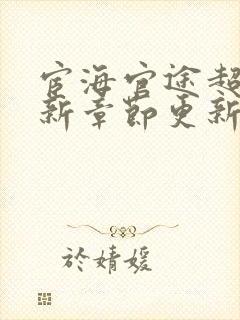 宦海官途超
新章節更新
於婧媛